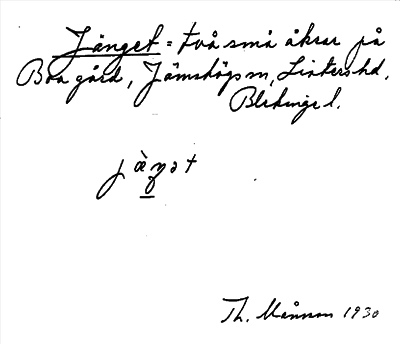 Jänget = två små åkrar på
Boa gård, Jämshögs sn, Listers hd,
Blekinge l.
jàŋət
Th. Månsson 1930